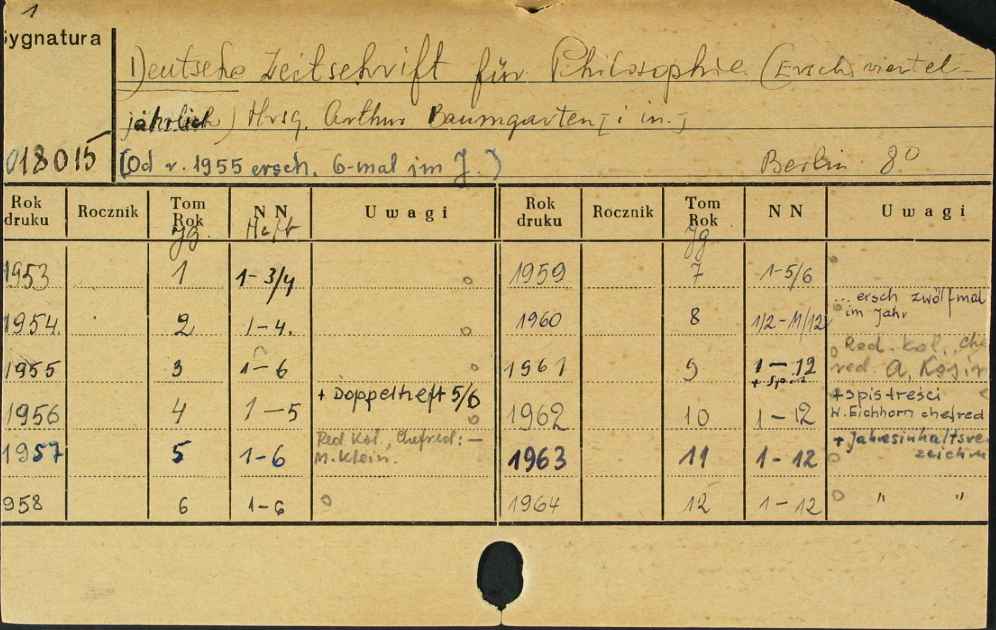 1
Sygnatura
Deutsche Zeitschrift für Philosophie (Ersch. viertel-
jährlich) Hrsg. Arthur Baumgarten [i in.]
018015 [Od r. 1955 ersch. 6-mal im J.) Berlin 8°
Rok druku Rocznik Tom Rok Jg. NN Heft Uwagi Rok druku Rocznik Tom Rok Jg NN Uwagi
1953 1 1-3/4 1959 7 1-5/6
1954. 2 1-4. 1960 8 1/2-11/12 ... ersch zwölfmal im Jahr
1955 3 1-6 1961 9 1-12 Red. Kol., red. A.
1956 4 1-5 + Doppelheft 5/6 1962 10 1-12 + spis treści W. Eichhorn chefred
1957 5 1-6 Red Kol., Chefred: - M. Klein. 1963 11 1-12 + Jahresinhaltsver zeichn
958 6 1-6 1964 12 1-12 " "